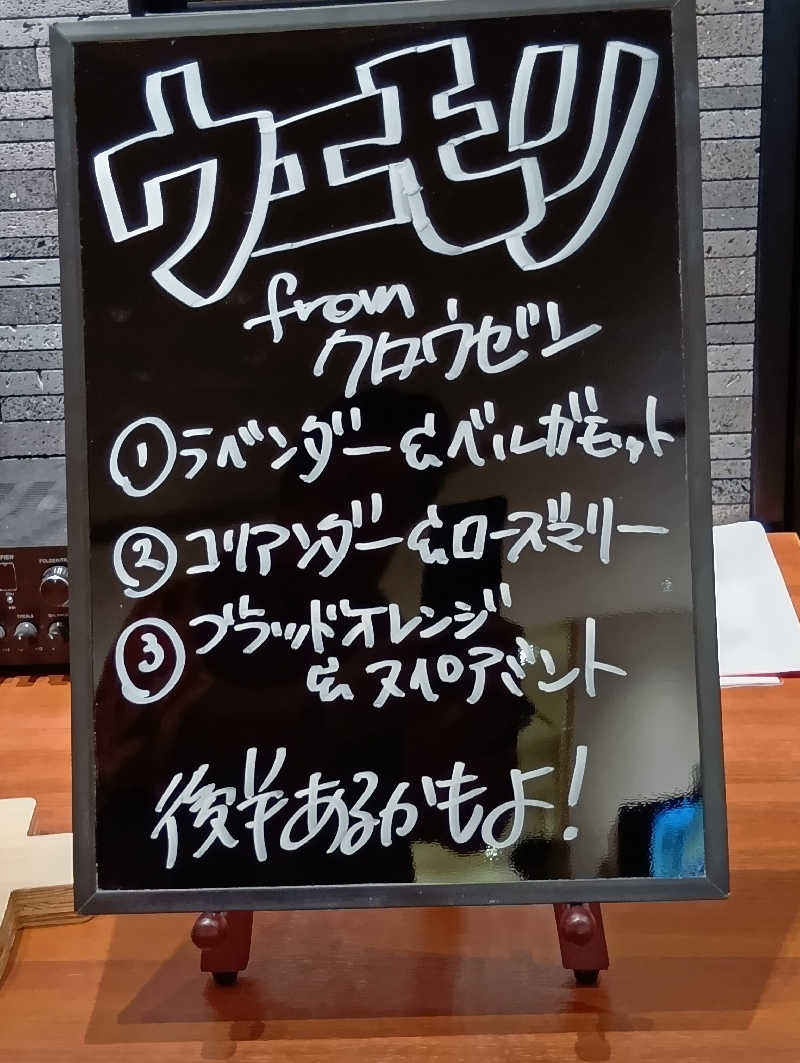 ウエモリ
from
クロウゼン
① ラベンダー&ベルガモット
② コリアンダー&ローズマリー
③ ブラッドオレンジ
&スペアミント
後半あるかもよ!